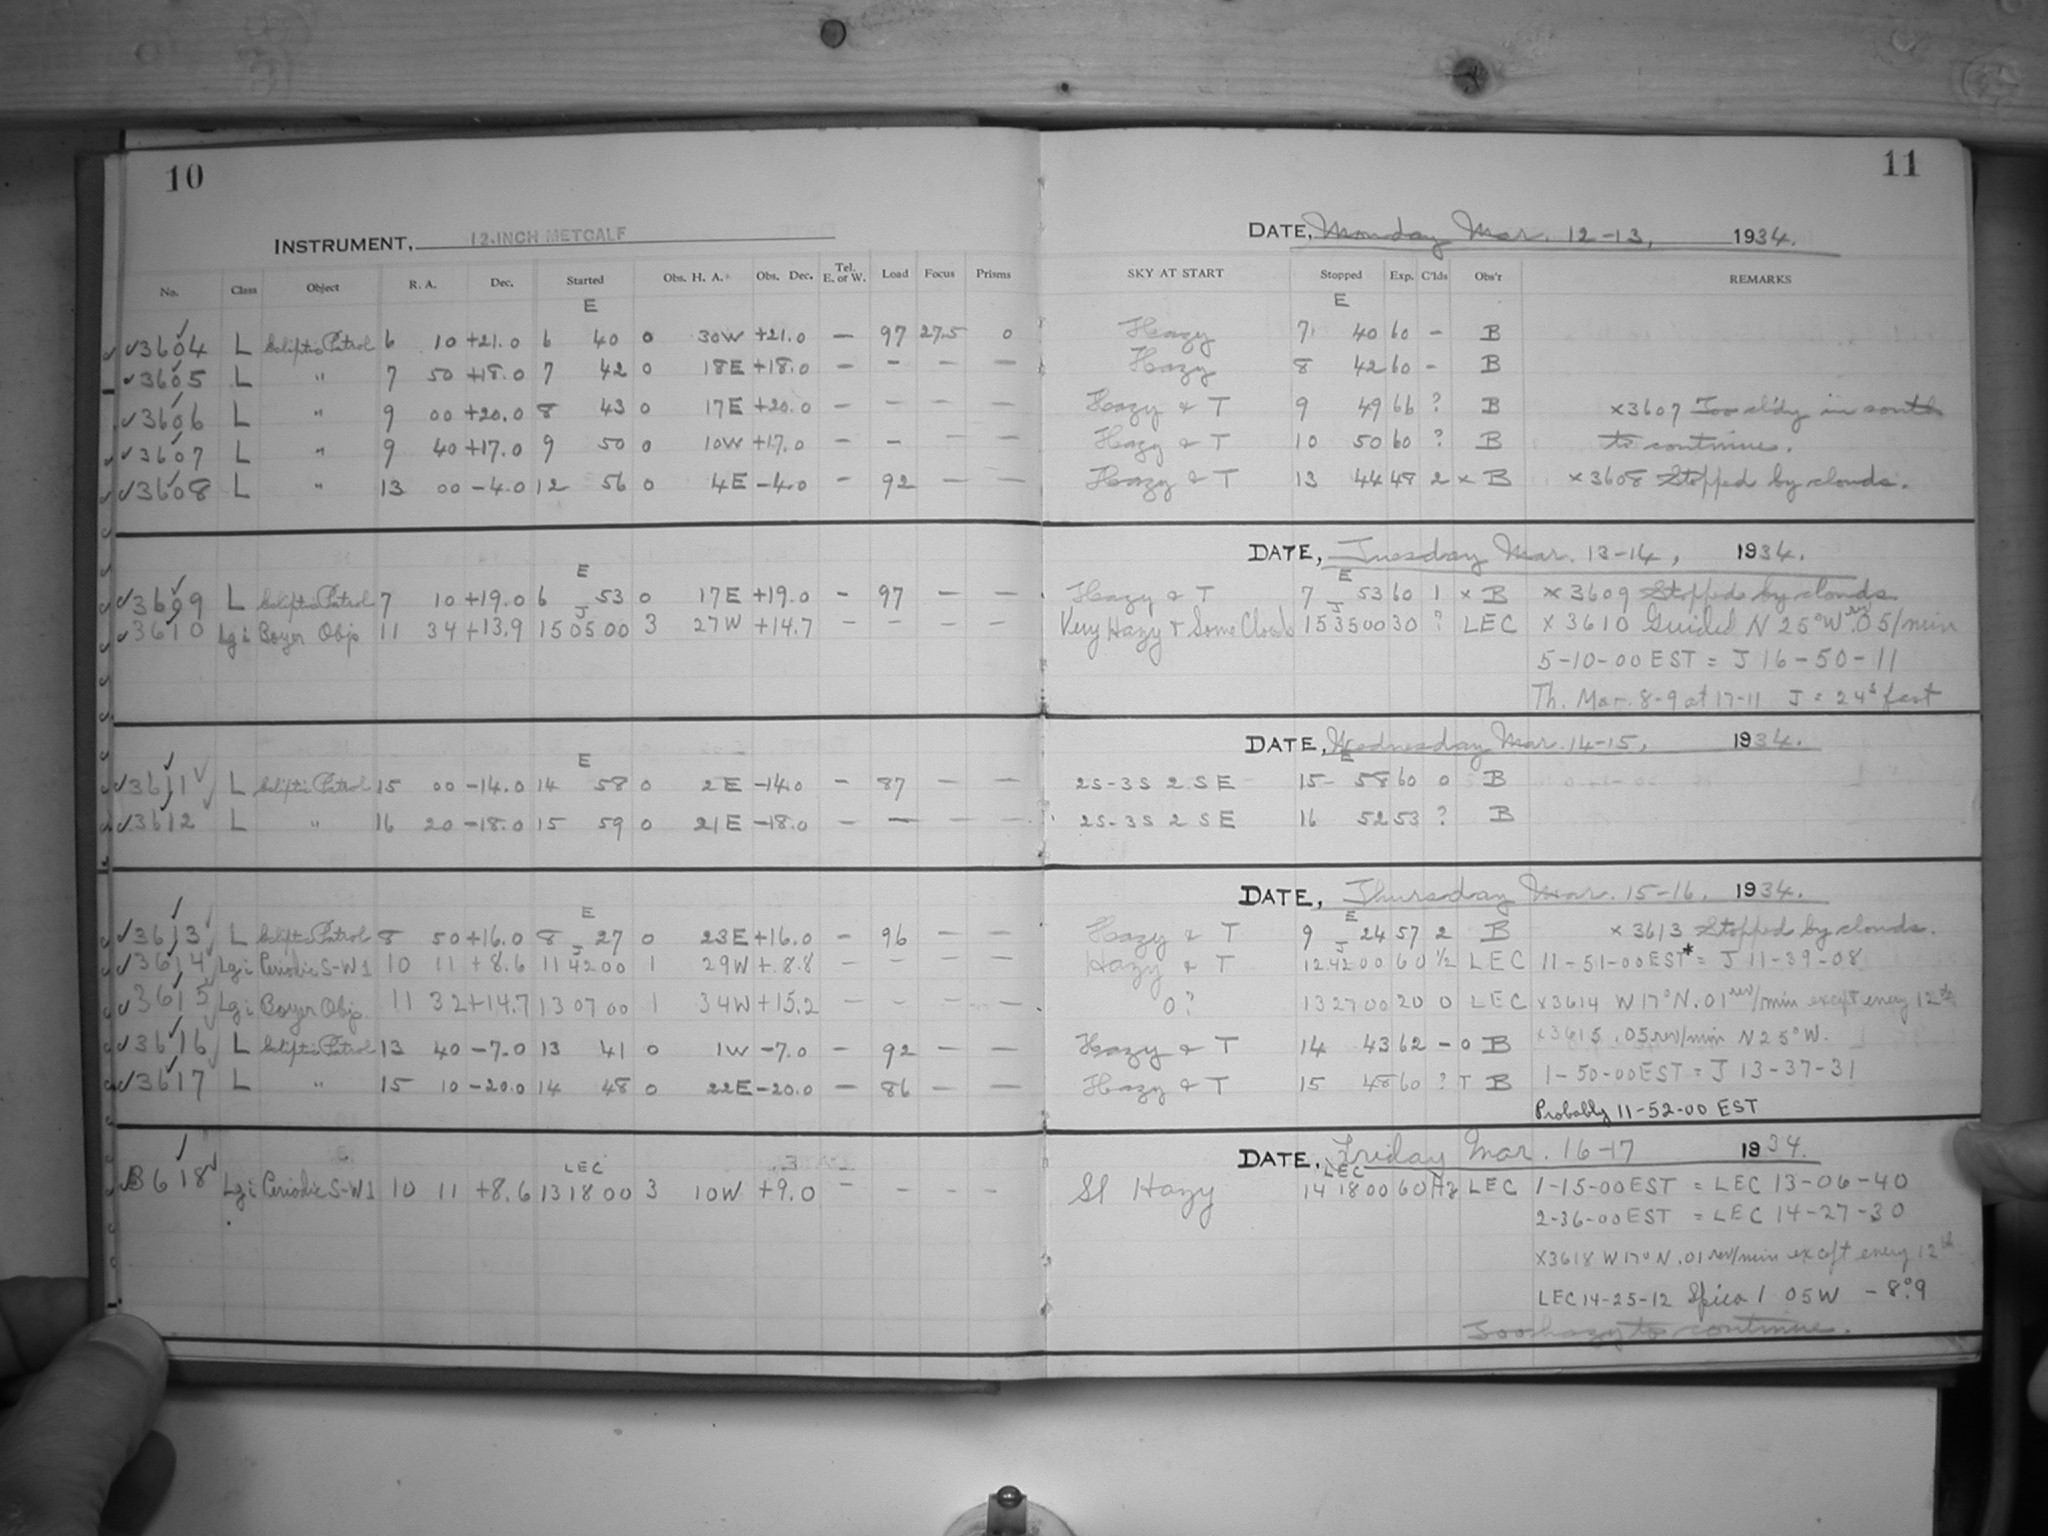 10
11
INSTRUMENT, 12-INCH METCALF
DATE, Monday Mar. 12-13, 1934.
No. Class Object R. A. Dec. Started Obs. H. A. Obs. Dec. Tel. E. or W. Load Focus Prisms SKY AT START Stopped Exp. C'lds Obs'r REMARKS
E E
3604 L Ecliptic Patrol 6 10 +21.0 6 40 0 30W +21.0 — 97 27.5 0 Hazy 7 40 60 - B
3605 L " 7 50 +18.0 7 42 0 18E +18.0 — - — — Hazy 8 42 60 - B
3606 L " 9 00 +20.0 8 43 0 17E +20.0 — - — — Hazy & T 9 49 66 ? B x3607 Too cl'dy in south
3607 L " 9 40 +17.0 9 50 0 10W +17.0 — - — — Hazy & T 10 50 60 ? B to continue.
3608 L " 13 00 -4.0 12 56 0 4E -4.0 - 92 — — Hazy & T 13 44 48 2 x B x3608 Stopped by clouds.
DATE, Tuesday Mar. 13-14, 1934.
E E
3609 L Ecliptic Patrol 7 10 +19.0 6 53 0 17E +19.0 - 97 — — Hazy & T 7 53 60 1 x B x3609 Stopped by clouds
J J
3610 Lgi Boyer Obj 11 34 +13.9 15 05 00 3 27W +14.7 — — — — Very Hazy & Some Clouds 15 35 00 30 ? LEC x 3610 Guided N 25°W .05 rev/min
5-10-00 EST = J 16-50-11
Th. Mar. 8-9 at 17-11 J = 24s fast
DATE, Wednesday Mar. 14-15, 1934.
E E
3611 L Ecliptic Patrol 15 00 -14.0 14 58 0 2E -14.0 - 87 — — 2S-3S 2 SE 15 58 60 0 B
3612 L " 16 20 -18.0 15 59 0 21E -18.0 — — — — 2S-3S 2 SE 16 52 53 ? B
DATE, Thursday Mar. 15-16, 1934.
E E
3613 L Ecliptic Patrol 8 50 +16.0 8 27 0 23E +16.0 - 96 — — Hazy & T 9 24 57 2 B x 3613 Stopped by clouds.
J J
3614 Lgi Periodic S-W1 10 11 +8.6 11 42 00 1 29W +8.8 — — — — Hazy & T 12 42 00 60 ½ LEC 11-51-00 EST* = J 11-39-08
3615 Lgi Boyer Obj. 11 32 +14.7 13 07 00 1 34W +15.2 — — — — 0? 13 27 00 20 0 LEC x3614 W 17°N .01 rev/min except every 12th
3616 L Ecliptic Patrol 13 40 -7.0 13 41 0 1W -7.0 - 92 — — Hazy & T 14 43 62 - 0 B x3615 .05 rev/min N 25° W.
3617 L " 15 10 -20.0 14 48 0 22E -20.0 — 86 — — Hazy & T 15 48 60 ? T B 1-50-00 EST = J 13-37-31
Probably 11-52-00 EST
DATE, Friday Mar. 16-17 1934.
LEC LEC
3618 Lgi Periodic S-W1 10 11 +8.6 13 18 00 3 10W +9.0 — - - — Sl Hazy 14 18 00 60 Hz LEC 1-15-00 EST = LEC 13-06-40
2-36-00 EST = LEC 14-27-30
x3618 W 17° N .01 rev/min except every 12th
LEC 14-25-12 Spica 1 05W - 8°.9
Too hazy to continue.